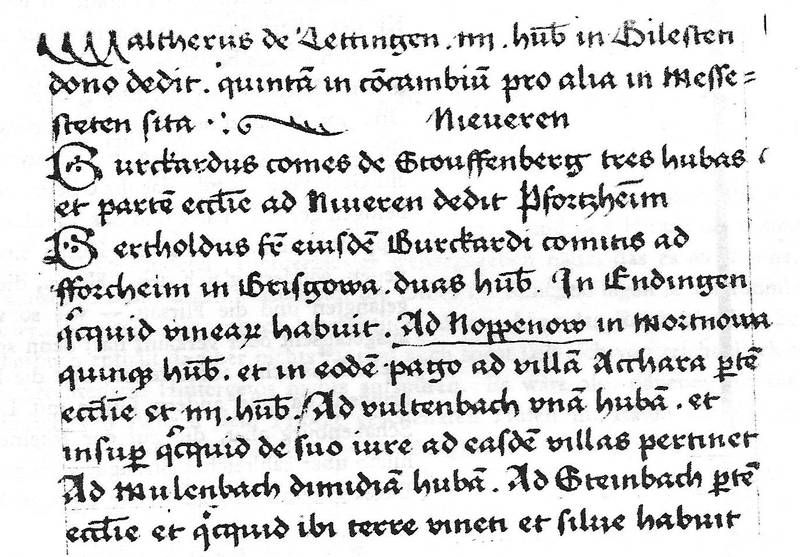 Waltherus de Lettingen . iiij . hub̄ in Gilesten
dono dedit . quintā in cōcambiū pro alia in Messe=
steten sita ·:~ Nieueren
Burckardus comes de Stouffenberg tres hubas
et partē eccl̄ie ad Niueren dedit Pfortzheīm
Bertholdus fr̄ eiusdē Burckardi comitis ad
fforcheim in Brisgowa . duas hub̄. In Endingen
qͥcquid vineaꝝ habuit . Ad Noppenow in Mortnowa
quinqꝫ hub̄. et in eodē pago ad villā Acchara ꝑtē
eccl̄ie et iiij . hub̄. / Ad vultenbach vnā hubā . et
insuꝑ qͥcquid de suo iure ad easdē villas pertinet
Ad Mulenbach dimidiā hubā . Ad Steinbach ꝑtē
eccl̄ie et qͥcquid ibi terre vineti et silue habuit